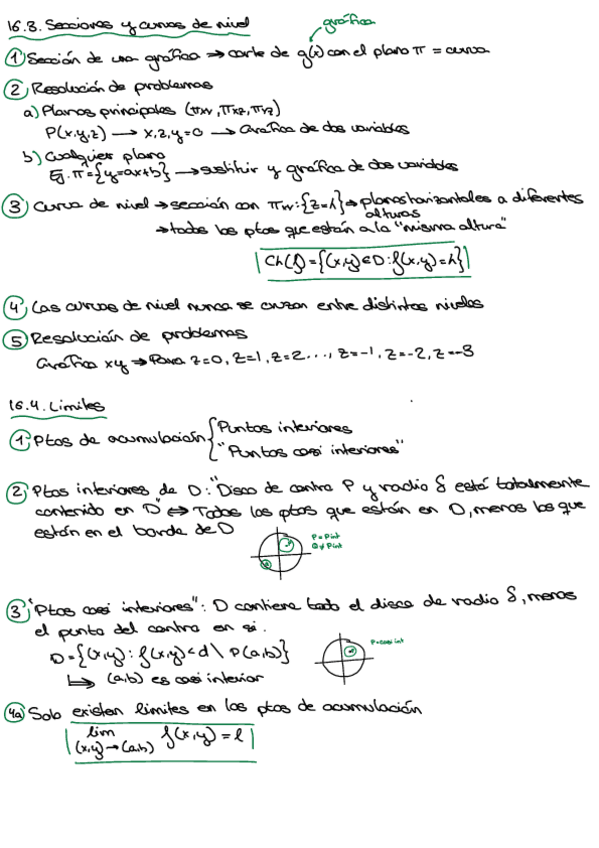 16.3. Secciones y curvas de nivel
gráfica
① Sección de una gráfica → corte de g(x) con el plano π = curva
② Resolución de problemas
a) Planos principales (πxy, πxz, πyz)
P(x,y,z) → x,z,y=0 → Gráfica de dos variables
b) Cualquier plano
Ej. π={y=ax+b} → sustituir y gráfica de dos variables
③ Curva de nivel → sección con πxy:{z=h} → planos horizontales a diferentes
alturas
→ todos los ptos que están a la "misma altura"
Ch(f)={(x,y)∈D:f(x,y)=h}
④ Las curvas de nivel nunca se cruzan entre distintos niveles
⑤ Resolución de problemas
Gráfica xy → Para z=0, z=1, z=2..., z=-1, z=-2, z=-3
16.4. Limites
① Ptos de acumulación { Puntos interiores
"Puntos casi interiores"
② Ptos interiores de D: "Disco de centro P y radio δ está totalmente
contenido en D" ⇔ Todos los ptos que están en D, menos los que
están en el borde de D
P = Pint
Q ≠ Pint
③ "Ptos casi interiores": D contiene todo el disco de radio δ, menos
el punto del centro en si.
P=casi int
D={(x,y): f(x,y)<d \ P(a,b)}
↳ (a,b) es casi interior
4a) Solo existen limites en los ptos de acumulación
lim f(x,y) = l
(x,y)→(a,b)